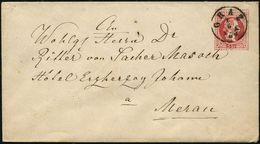 GRAZ
An
Wohlg. Herrn Dr
Ritter von Sacher Masoch
Hôtel Erzherzog Johann
a
Meran